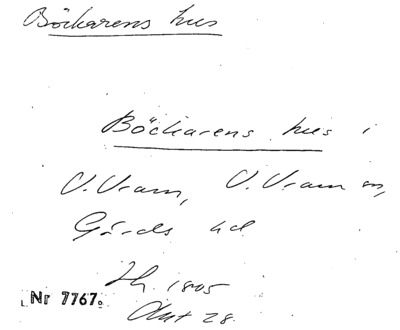 Böckarens hus
Böckarens hus i
V. Vram, V. Vram sn,
Gärds hd
Th. 1805
Nr 7767.
28